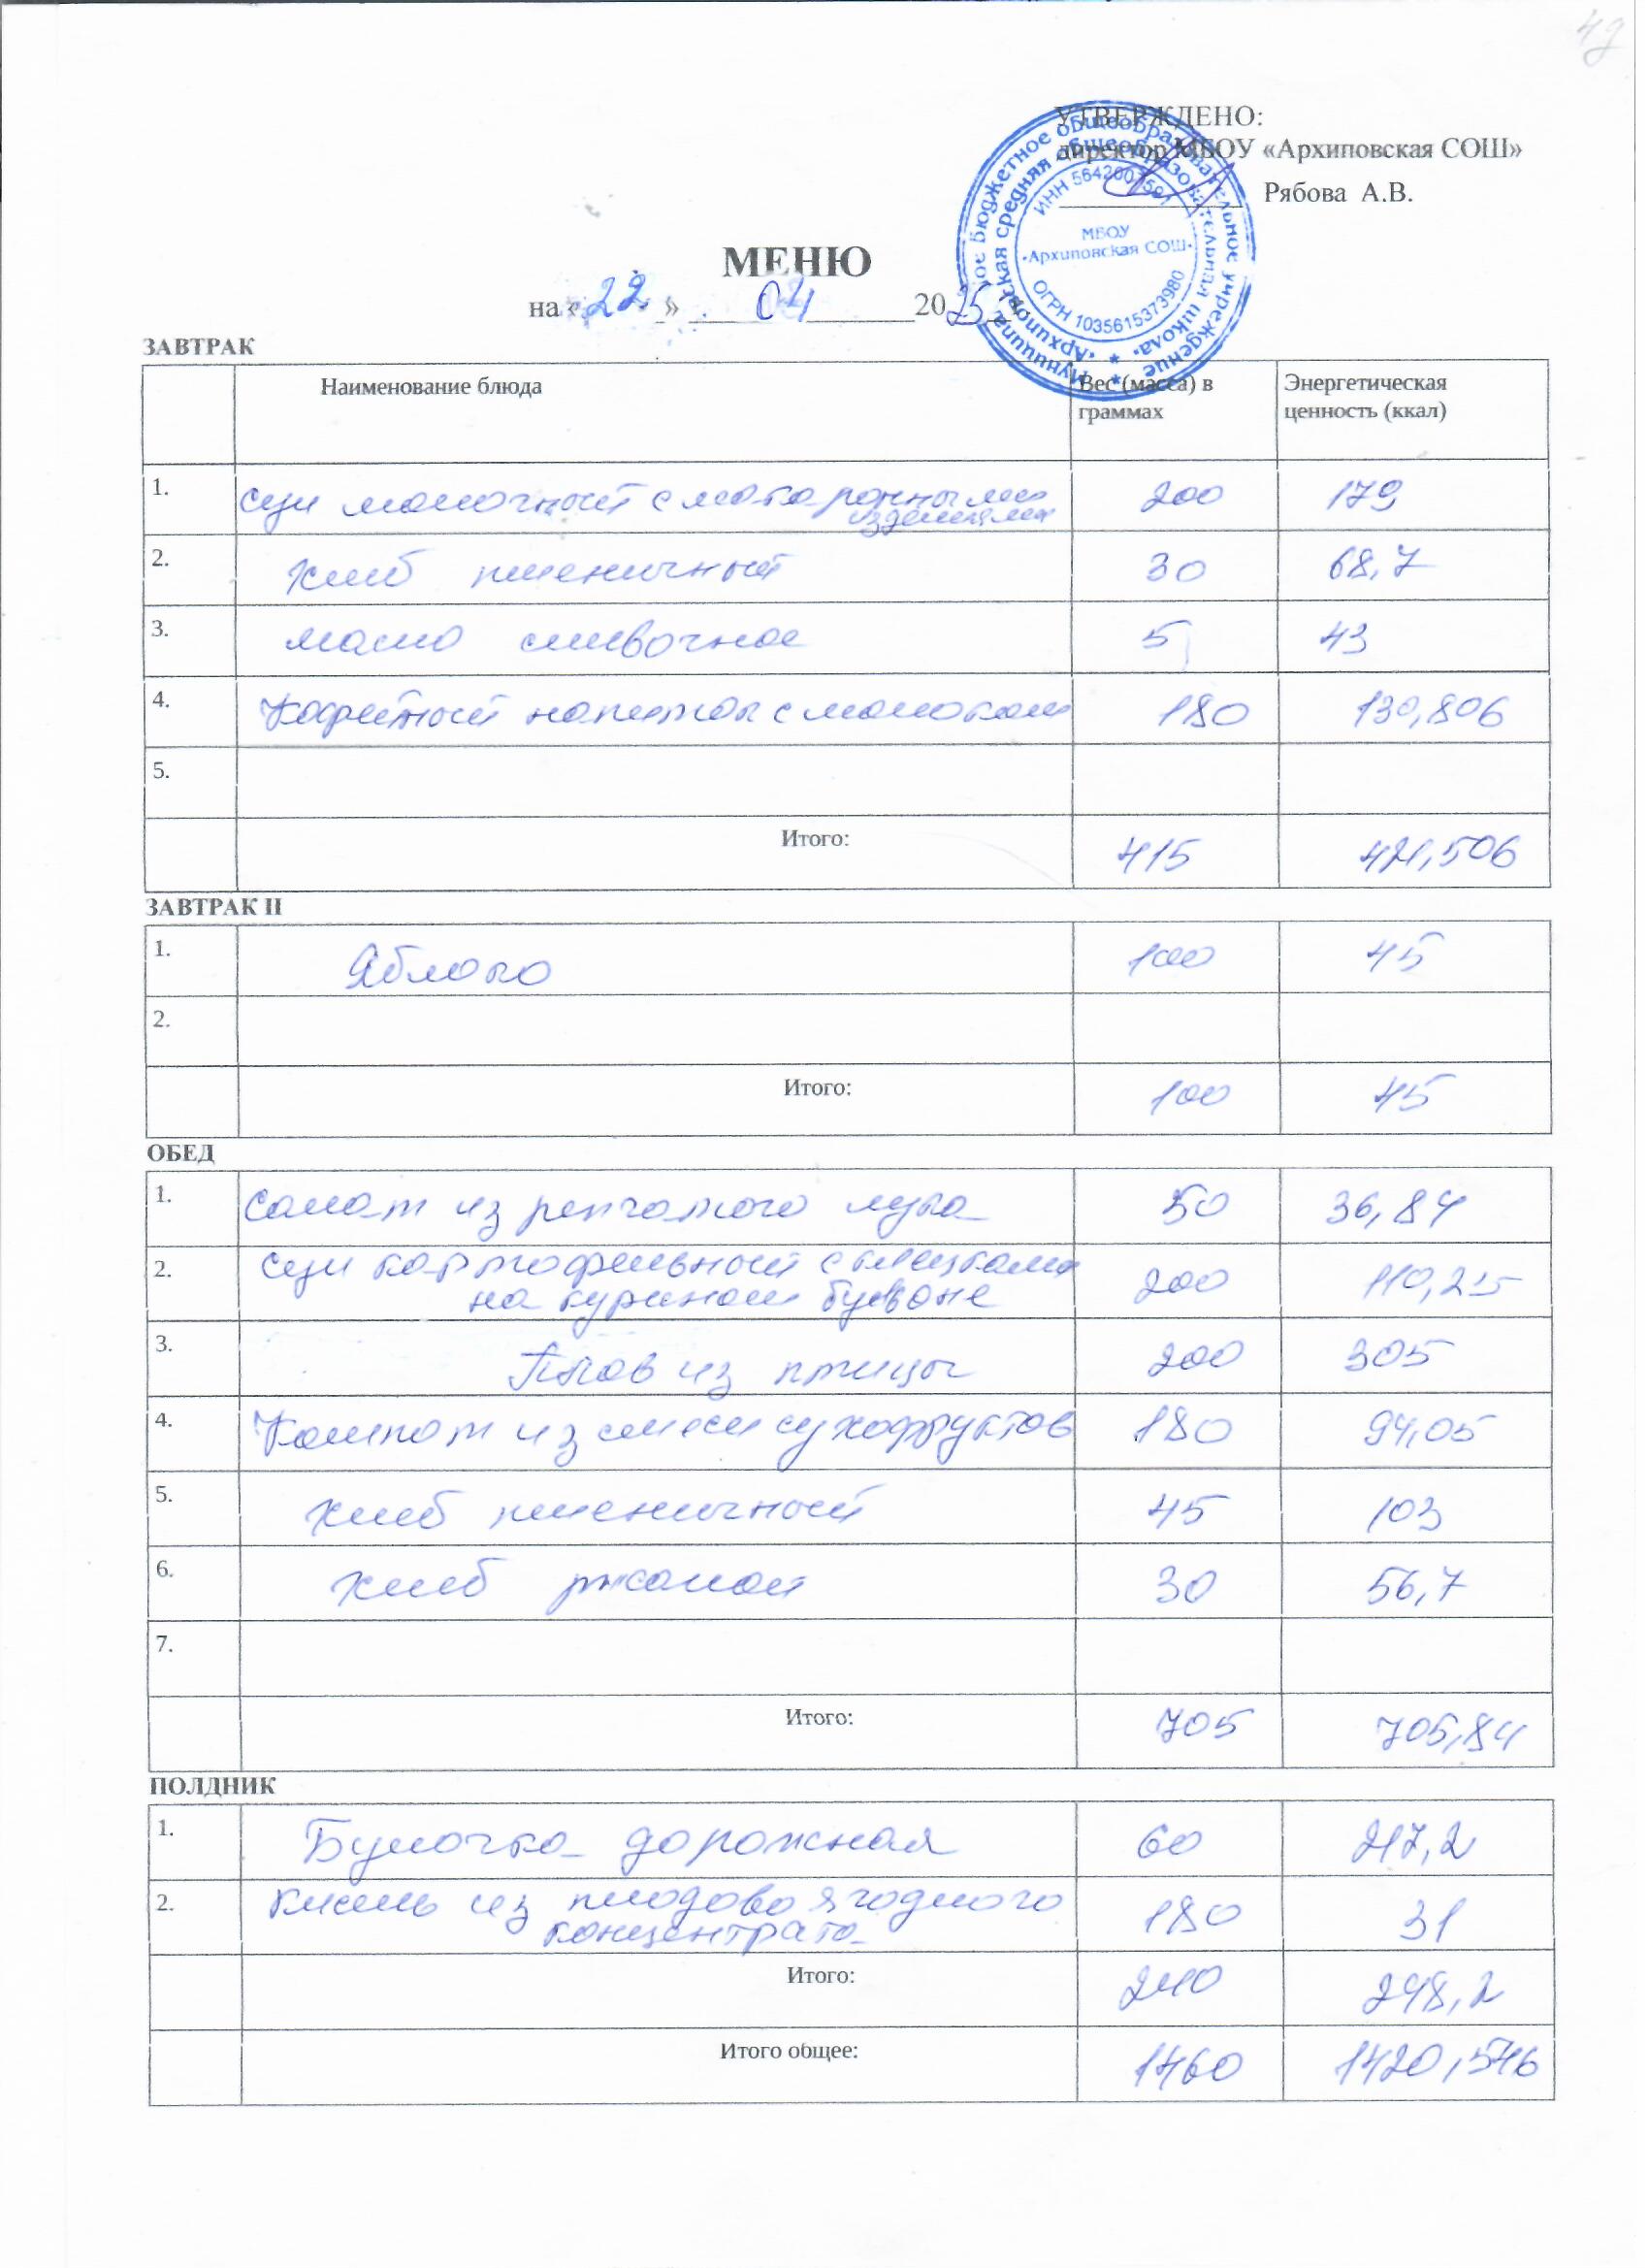 49
УТВЕРЖДЕНО:
директор МБОУ «Архиповская СОШ»
Рябова А.В.
ИНН
МБОУ
«Архиповская СОШ»
ОГРН 1035615373980
МЕНЮ
на «22» 04 2025 г.
ЗАВТРАК
Наименование блюда Вес (масса) в граммах Энергетическая ценность (ккал)
1. Суп молочный с макаронными изделиями 200 179
2. Хлеб пшеничный 30 68,7
3. масло сливочное 5 43
4. Кофейный напиток с молоком 180 130,806
5.
Итого: 415 421,506
ЗАВТРАК II
1. Яблоко 100 45
2.
Итого: 100 45
ОБЕД
1. Салат из репчатого лука 50 36,84
2. Суп картофельный с клецками на курином бульоне 200 110,25
3. Плов из птицы 200 305
4. Компот из смеси сухофруктов 180 94,05
5. Хлеб пшеничный 45 103
6. Хлеб ржаной 30 56,7
7.
Итого: 705 705,84
ПОЛДНИК
1. Булочка дорожная 60 217,2
2. Кисель из плодово ягодного концентрата 180 31
Итого: 240 248,2
Итого общее: 1460 1420,546